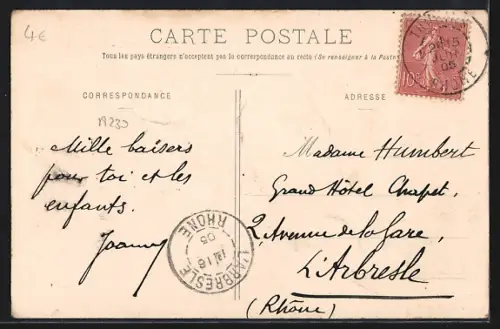 4€
CARTE POSTALE
Tous les pays étrangers n'acceptent pas la correspondance au recto (Se renseigner à la Poste)
CORRESPONDANCE
ADRESSE
19230
Mille baisers
pour toi et les
enfants.
Joanny
Madame Humbert
Grand Hôtel Chapet,
2, Avenue de la Gare,
L'Arbresle
(Rhône)
L'ARBRESLE
RHONE
05
10c
15
05
RHONE